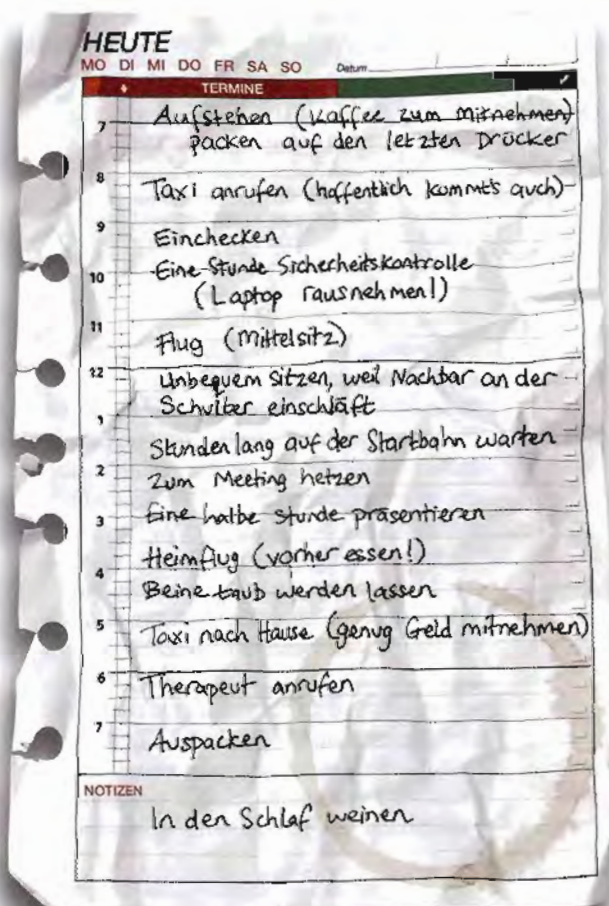 HEUTE
MO DI MI DO FR SA SO Datum
TERMINE
7 Aufstehen (Kaffee zum mitnehmen)
packen auf den letzten Drücker
8 Taxi anrufen (hoffentlich kommt's auch)
9 Einchecken
10 Eine Stunde Sicherheitskontrolle
(Laptop rausnehmen!)
11 Flug (Mittelsitz)
12 Unbequem sitzen, weil Nachbar an der
1 Schulter einschläft
Stundenlang auf der Startbahn warten
2 Zum Meeting hetzen
3 Eine halbe Stunde präsentieren
Heimflug (vorher essen!)
4 Beine taub werden lassen
5 Taxi nach Hause (genug Geld mitnehmen)
6 Therapeut anrufen
7 Auspacken
NOTIZEN
In den Schlaf weinen